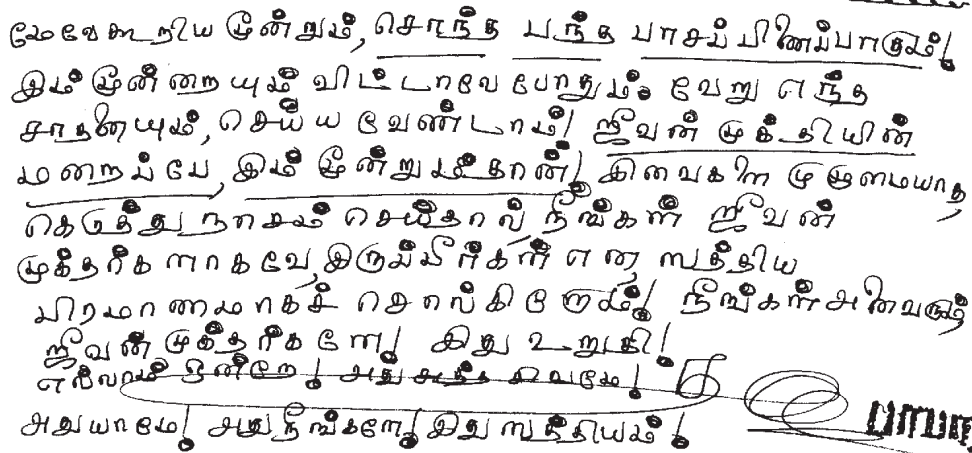 மேலே கூறிய மூன்றும், சொந்த பந்த பாசப் பிணைப்பாகும்!
இம் மூன்றையும் விட்டாலே போதும். வேறு எந்த
சாதனையும், செய்ய வேண்டாம்! ஜீவன் முக்தியின்
மறைப்பே, இம் மூன்றுமேதான்! இவைகளை முழுமையாக,
கெடுத்து நாசம் செய்தால் நீங்கள் ஜீவன்
முக்தர்களாகவே, இருப்பீர்கள் என, ஸத்திய
பிரமாணமாகச் சொல்கிறோம்! நீங்கள் அனைவரும்
ஜீவன் முக்தர்களே! இது உறுதி!
எல்லாம் ஒன்றே! அது அந்த சிவமே!
அதுயாமே! அது நீங்களே! இது ஸத்தியம்!